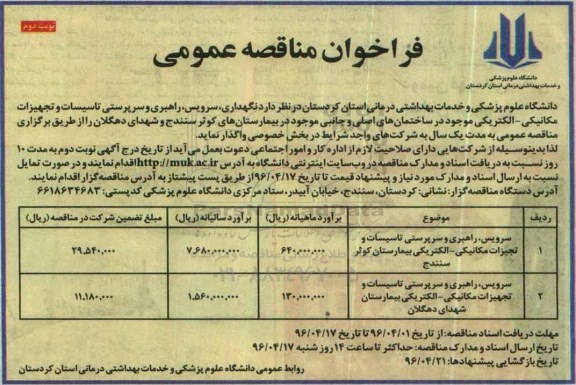 نوبت دوم
فراخوان مناقصه عمومی
دانشگاه علوم پزشکی
و خدمات بهداشتی درمانی استان کردستان
دانشگاه علوم پزشکی و خدمات بهداشتی درمانی استان کردستان در نظر دارد نگهداری، سرویس، راهبری و سرپرستی تاسیسات و تجهیزات
مکانیکی - الکتریکی موجود در ساختمان‌های اصلی و جانبی موجود در بیمارستان‌های کوثر سنندج و شهدای دهگلان را از طریق برگزاری
مناقصه عمومی به مدت یک سال به شرکت‌های واجد شرایط در بخش خصوصی واگذار نماید.
لذا بدینوسیله از شرکت‌هایی دارای صلاحیت لازم از اداره کار و امور اجتماعی دعوت بعمل می‌آید از تاریخ درج آگهی نوبت دوم به مدت ۱۰
روز نسبت به دریافت اسناد و مدارک مناقصه در وب‌سایت اینترنتی دانشگاه به آدرس http://muk.ac.ir اقدام نمایند و در صورت تمایل
نسبت به ارسال اسناد و مدارک مورد نیاز و پیشنهاد قیمت تا تاریخ ۹۶/۰۴/۱۷ از طریق پست پیشتاز به آدرس مناقصه‌گزار اقدام نمایند.
آدرس دستگاه مناقصه‌گزار: نشانی: کردستان، سنندج، خیابان آبیدر، ستاد مرکزی دانشگاه علوم پزشکی کدپستی: ۶۶۱۸۶۳۴۶۸۳
ردیف موضوع برآورد ماهیانه (ریال) برآورد سالیانه (ریال) مبلغ تضمین شرکت در مناقصه (ریال)
۱ سرویس، راهبری و سرپرستی تاسیسات و تجیزات مکانیکی - الکتریکی بیمارستان کوثر سنندج ۶۴۰۰۰۰۰۰۰ ۷.۶۸۰.۰۰۰.۰۰۰ ۲۹.۵۴۰.۰۰۰
۲ سرویس، راهبری و سرپرستی تاسیسات و تجهیزات مکانیکی - الکتریکی بیمارستان شهدای دهگلان ۱۳۰.۰۰۰.۰۰۰ ۱.۵۶۰.۰۰۰.۰۰۰ ۱۱.۱۸۰.۰۰۰
مهلت دریافت اسناد مناقصه: از تاریخ ۹۶/۰۴/۰۱ تا تاریخ ۹۶/۰۴/۱۷
تاریخ ارسال اسناد و مدارک مناقصه: حداکثر تا ساعت ۱۴ روز شنبه ۹۶/۰۴/۱۷
تاریخ بازگشایی پیشنهادها: ۹۶/۰۴/۲۱
روابط عمومی دانشگاه علوم پزشکی و خدمات بهداشتی درمانی استان کردستان